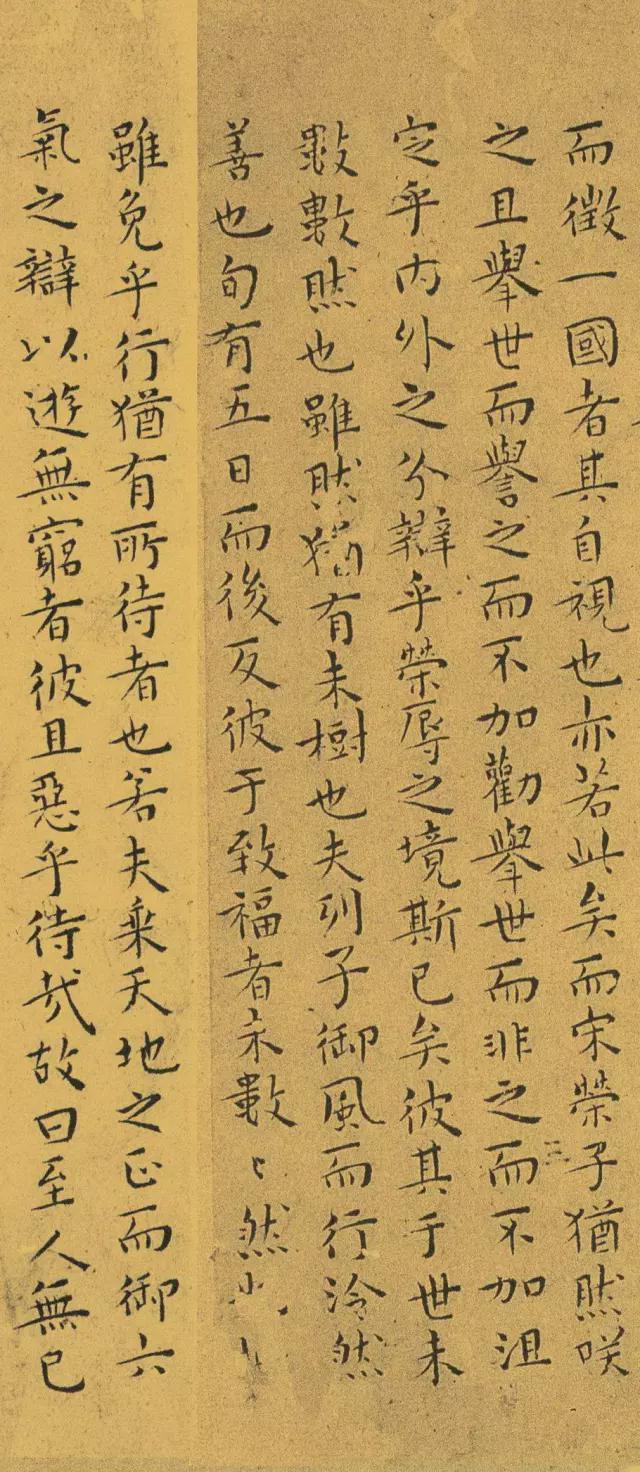 而徵一國者其自視也亦若此矣而宋榮子猶然咲
之且舉世而譽之而不加勸舉世而非之而不加沮
定乎内外之分辯乎榮辱之境斯已矣彼其于世未
數數然也雖然猶有未樹也夫列子御風而行泠然
善也旬有五日而後反彼于致福者未數〻然也
雖免乎行猶有所待者也若夫乘天地之正而御六
氣之辯以遊無窮者彼且惡乎待哉故曰至人無己